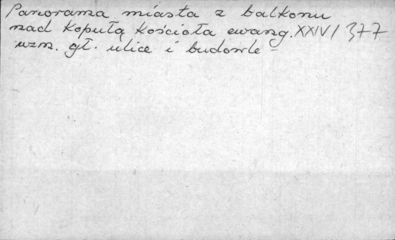 Panorama miasta z balkonu
nad kopułą kościoła ewang. XXIV/377
wzn. gł. ulice i budowle